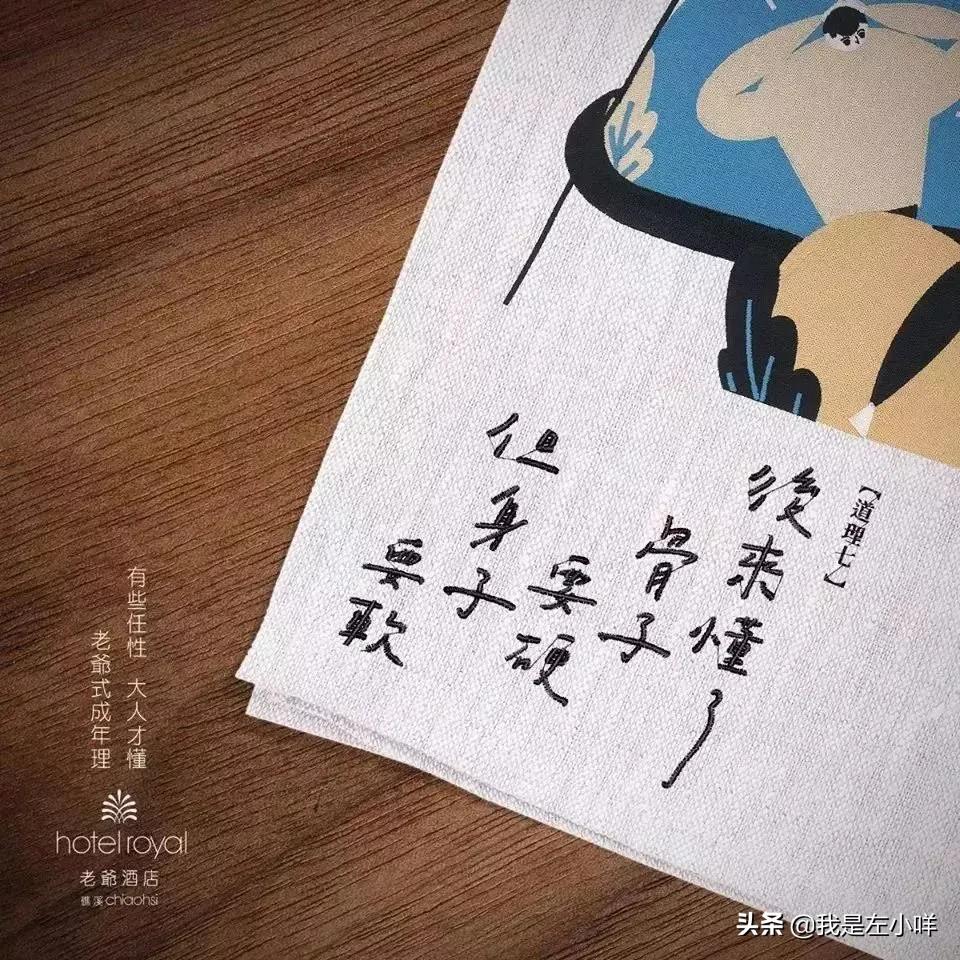 【道理七】
後來懂了
骨子
要硬
但身子
要軟
有些任性 大人才懂
老爺式成年理
hotel royal
老爺酒店
礁溪 chiaohsi
头条 @我是左小咩